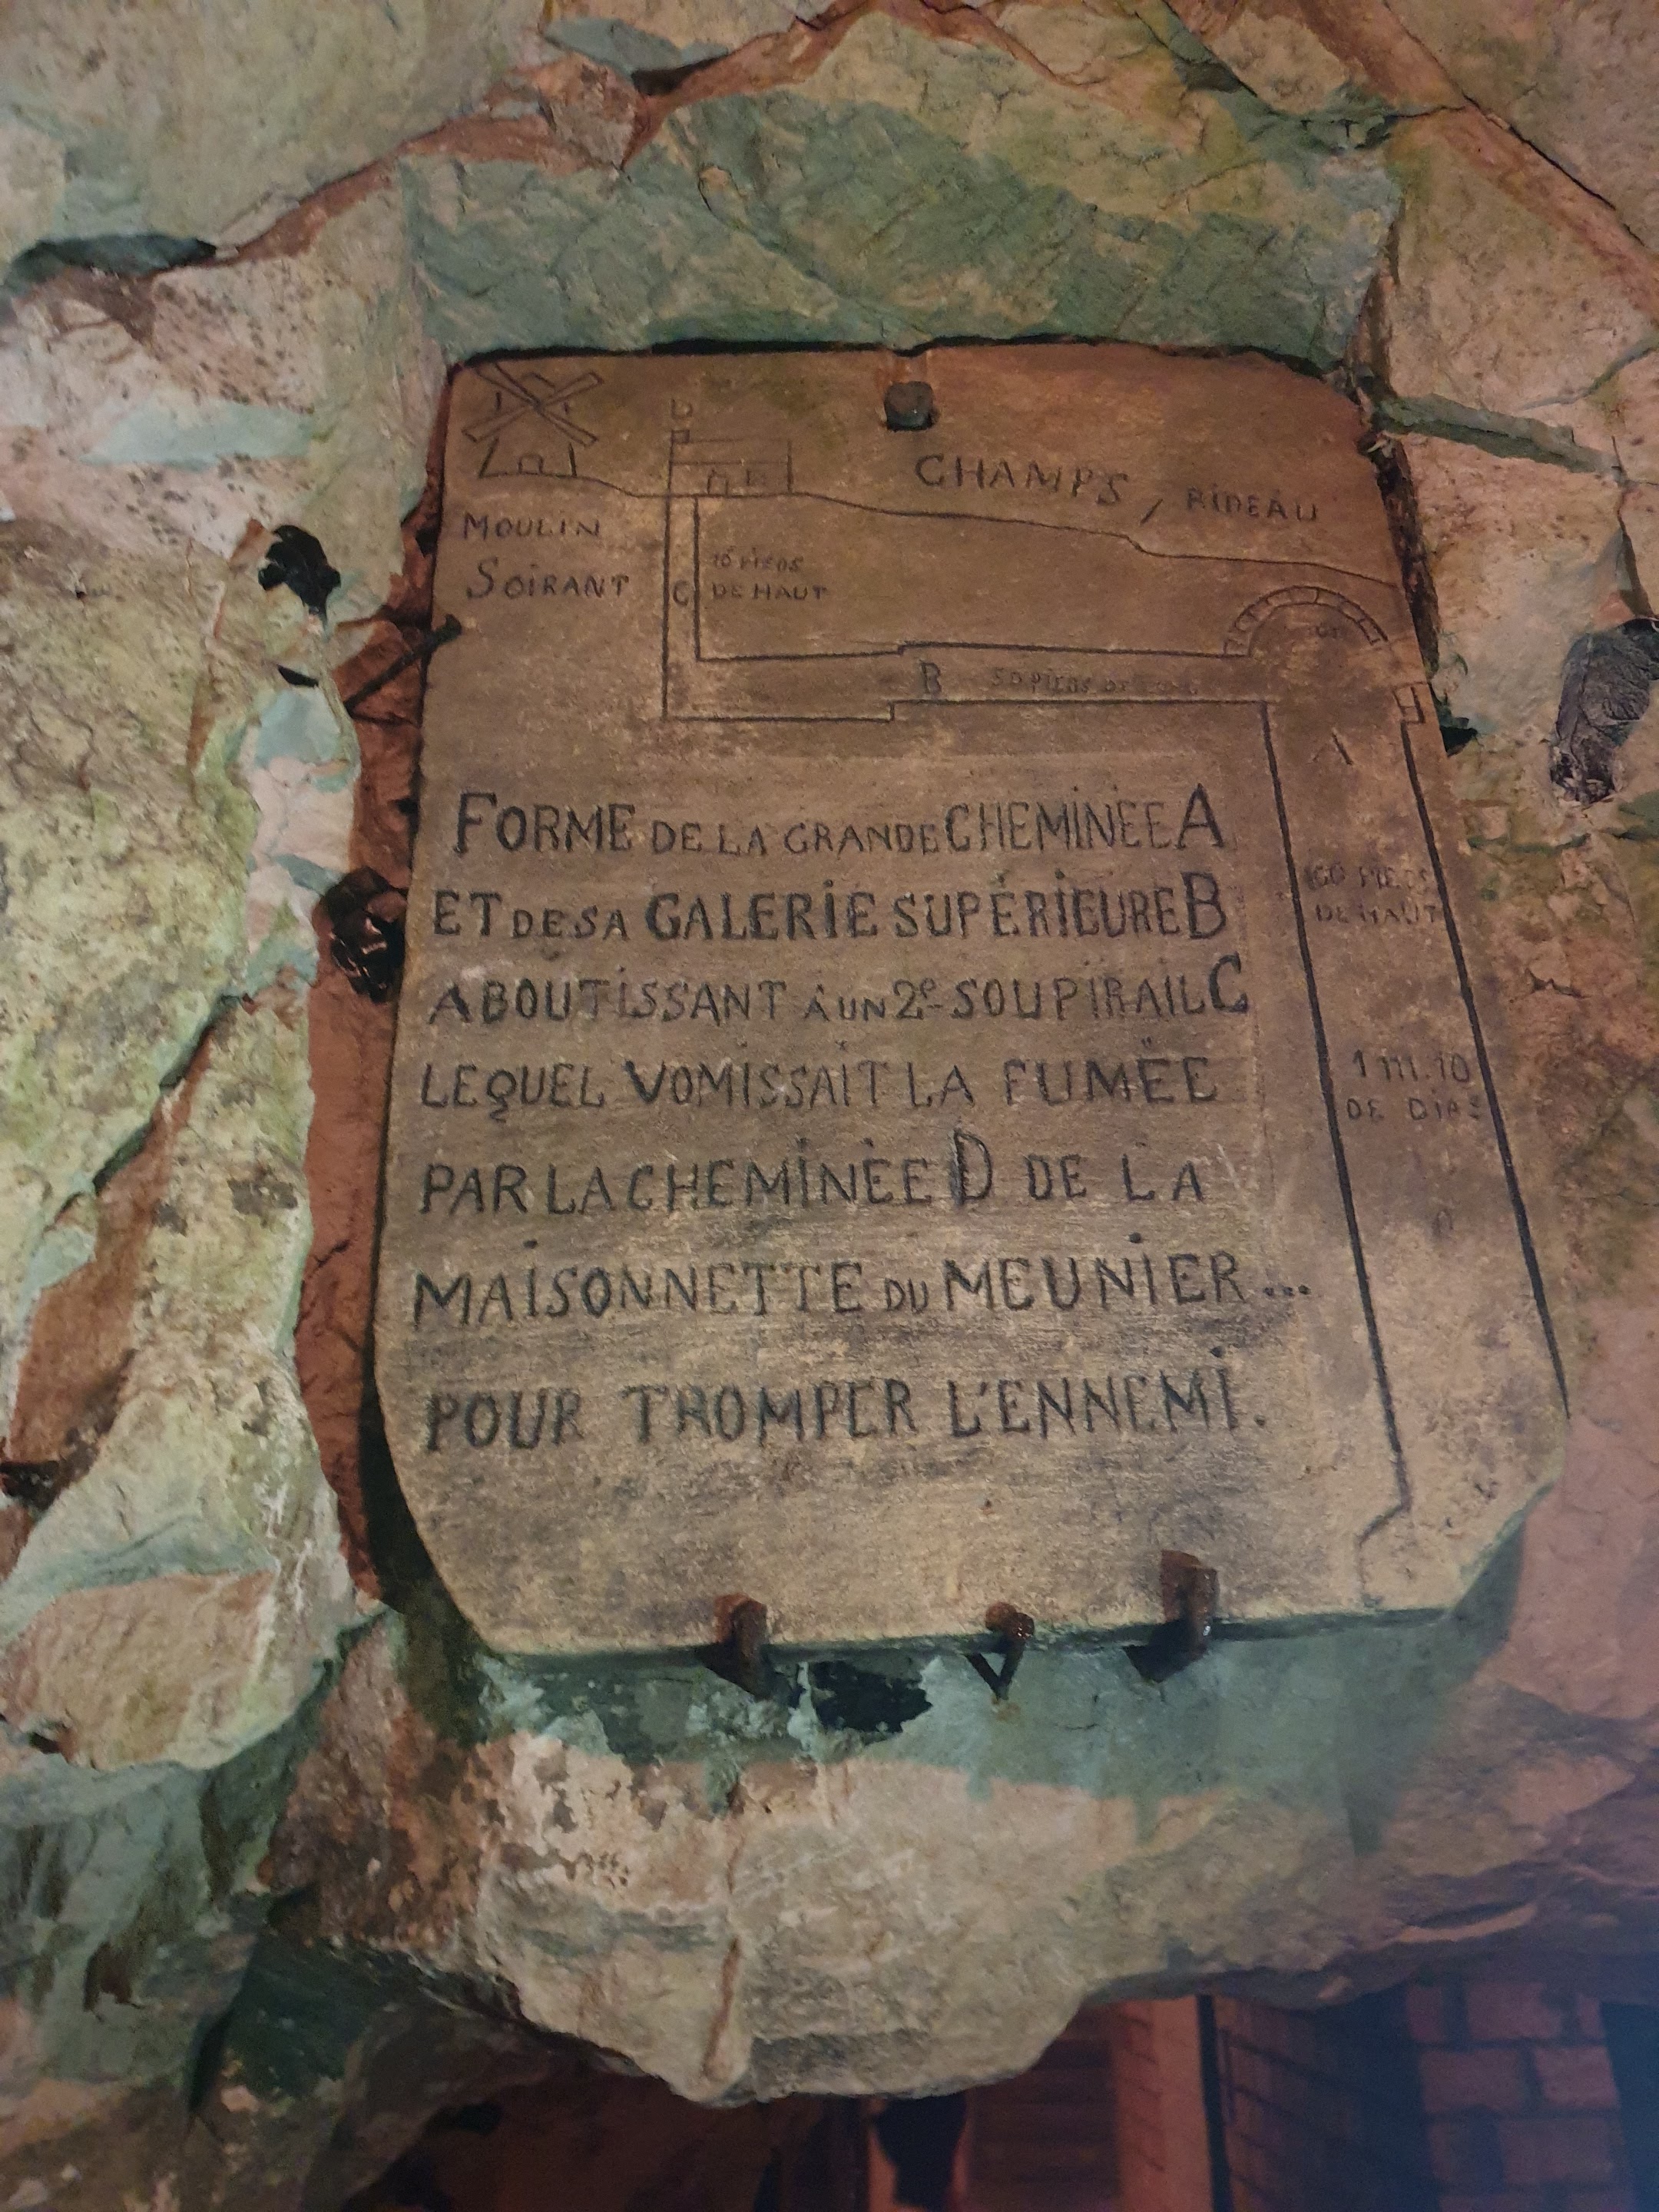 D
CHAMPS, RIDEAU
MOULIN
SOIRANT
C
PIEDS
DE HAUT
B
50 PIEDS DE
A
PIEDS
DE HAUT
1 m. 10
DE
FORME DE LA GRANDE CHEMINÉE A
ET DE SA GALERIE SUPÉRIEURE B
ABOUTISSANT À UN 2e SOUPIRAIL C
LEQUEL VOMISSAIT LA FUMÉE
PAR LA CHEMINÉE D DE LA
MAISONNETTE DU MEUNIER...
POUR TROMPER L'ENNEMI.